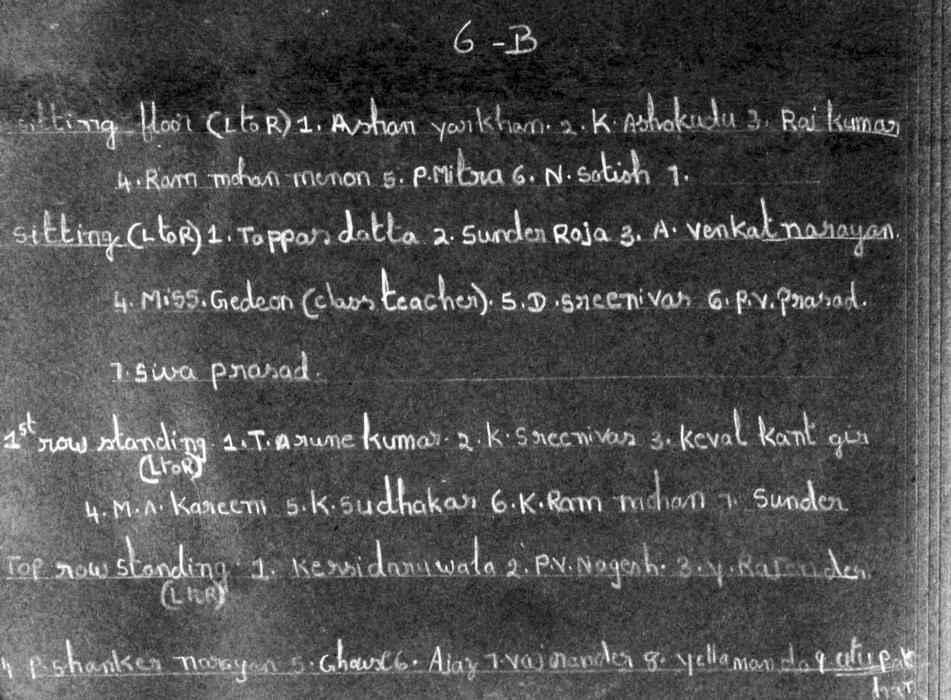 6-B
sitting floor (L to R) 1. Ashan yarikhan. 2. K. Ashokudu 3. Raj kumar
4. Ram mohan menon 5. P. Mitra 6. N. Satish 7.
sitting (L to R) 1. Toppas datta 2. Sunder Roja 3. A. Venkat narayan.
4. Miss. Gedeon (class teacher). 5. D. Sreenivas 6. P.V. Prasad.
7. Siva prasad.
1st row standing 1. T. Arune kumar. 2. K. Sreenivas 3. Keval Kant gir
(L to R)
4. M.A. Kareem 5. K. Sudhakar 6. K. Ram mohan 7. Sunder
Top row standing 1. 2. P.V. Nagesh. 3. Y.
(L to R)
4 P. shanker narayan 5. Ghouse 6. Ajay 7. 8.